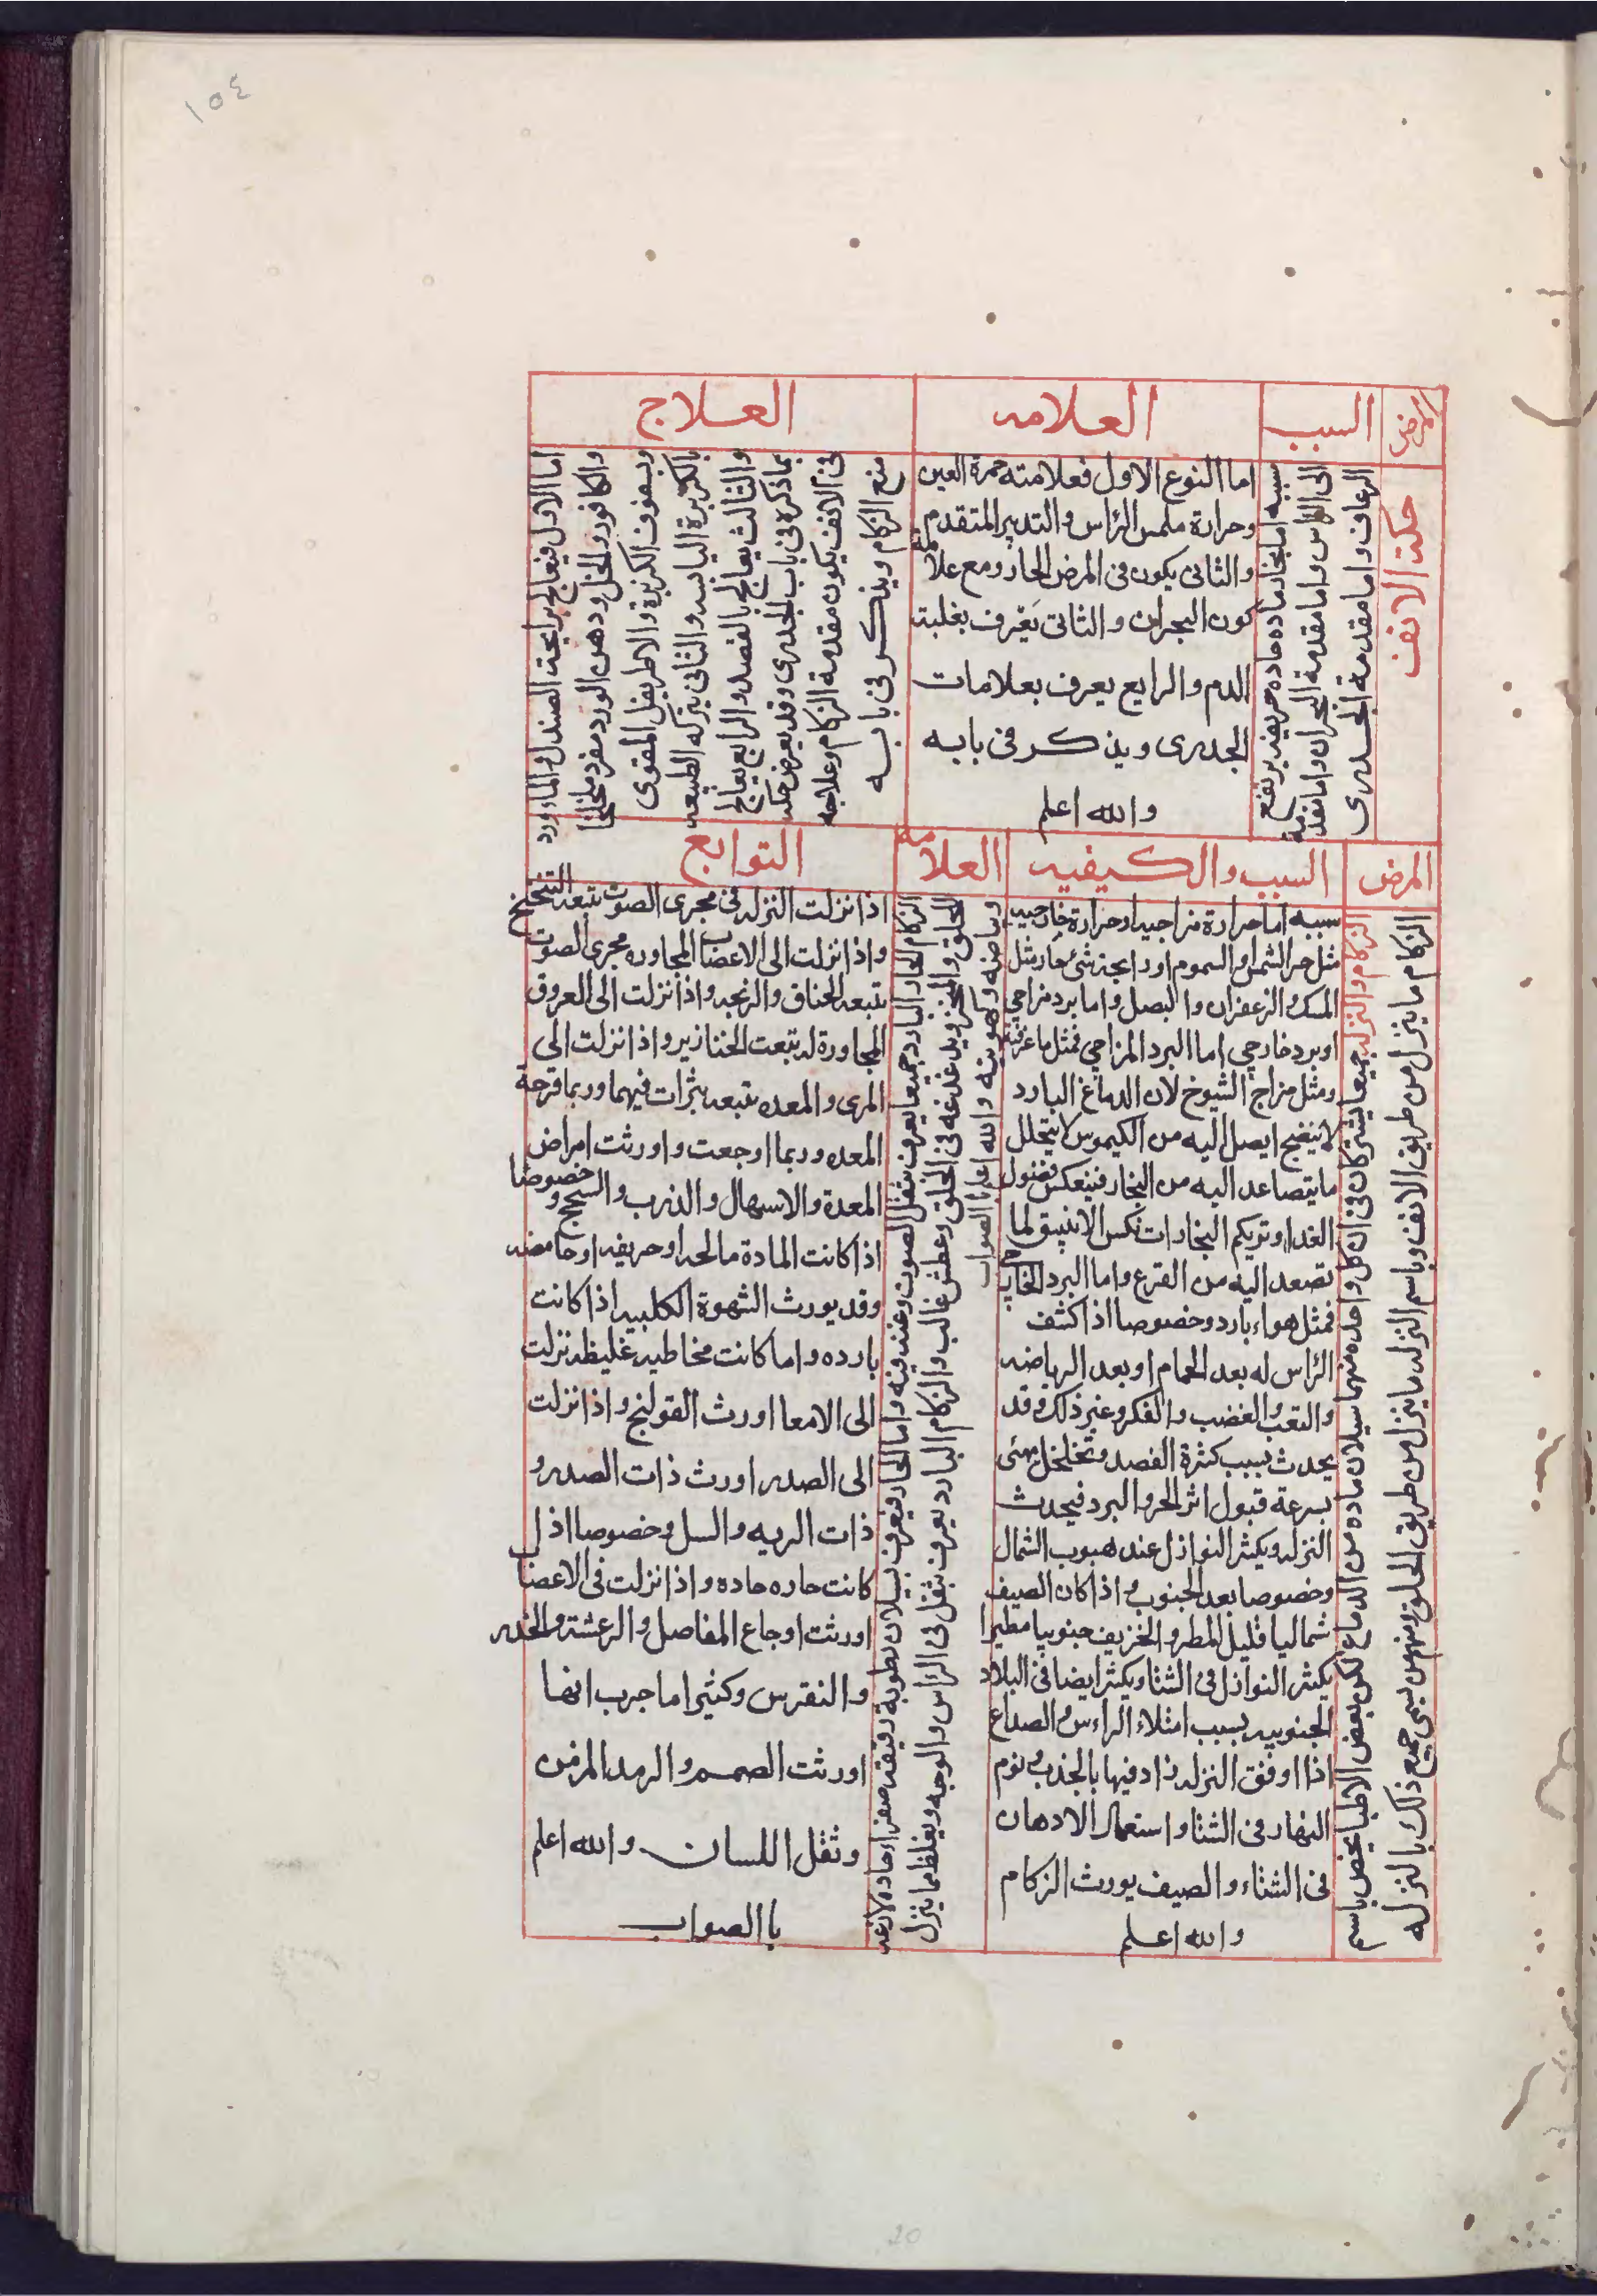 ١٥٤
المرض
السبب
العلامه
العلاج
حكة الانف
سببه اما بخار ماده حاده حريفه يرتفع
الى الراس واما مقدمة البحران واما مقدمة
الرعاف واما مقدمة الجدرى
اما النوع الاول فعلامته حمرة العين
وحرارة ملمس الراس والتدبير المتقدم
والثانى يكون فى المرض الحار ومع علامة
كون البحران والثانى يعرف بغلبة
الدم والرابع يعرف بعلامات
الجدرى ويذكر فى بابه
والله اعلم
اما الاول فيعالج برايحة الصندل والماء ورد
والكافور والخل ودهن الورد مفرد مخلخا
وبسفوف الكزبرة والاطريفل المقوى
بالكزبرة اليابسه والثانى يتركه الطبيعه
والثالث يعالج بالفصد والرابع يعالج
بما ذكره فى باب الجدرى وقد يعرض حكه
فى الانف يكون مقدمة الزكام وعلاجه
منع الزكام ويذكر فى بابه
المرض
السبب والكيفيه
العلامه
التوابع
الزكام والنزله جميعا يشتركان فى ان كل واحده منهما سيلان ماده من الدماغ لكن بعض الاطبا يخص باسم
الزكام ما ينزل من طريق الانف وباسم النزله ما ينزل من طريق الحلق ومنهم من يسمى جميع ذلك بالنزله
سببه اما حرارة مزاجيه او حرارة خارجيه
مثل حر الشمس والسموم او رايحة شئ حار مثل
المسك والزعفران والبصل واما برد مزاجي
او برد خارجي اما البرد المزاجي فمثل ما عرفته
ومثل مزاج الشيوخ لان الدماغ البارد
لا ينضج ايصل اليه من الكيموس لا يتحلل
ما يتصاعد اليه من البخار فينعكس فضول
الغدا وتريكم البخارات نكس الانبيق لما
تصعد اليه من القرع واما البرد الخارجي
فمثل هواء بارد وخصوصا اذا كشف
الراس له بعد الحمام او بعد الرياضه
والتعب والغضب والفكر وغير ذلك وقد
يحدث بسبب كثرة الفصد وتخلخل مهئى
بسرعة قبول اثر الحر والبرد فيحدث
النزله ويكثر النوازل عند هبوب الشمال
وخصوصا بعد الجنوب واذا كان الصيف
شماليا قليل المطر والخريف جنوبيا مطيرا
يكثر النوازل فى الشتا ويكثر ايضا فى البلاد
الجنوبيه بسبب امتلاء الراس والصداع
اذا اوفق النزله زاد فيها بالجذب ونوم
النهار فى الشتا واستعمال الادهان
فى الشتاء والصيف يورث الزكام
والله اعلم
الزكام الحار والبارد جميعا يعرف بثقل الصوت وغنه فيه واما الحار فيعرف بسيلان رطوبة رقيقه صفراء حاده لاذعه
للحلق والمنخر ويدغدغه فى الحلق وعطش غالب والزكام البارد يعرف بثقل فى الراس والوجه وبغلظ ما ينزل
وبياضه والله اعلم بالصواب
اذا نزلت النزله فى مجرى الصوت تتبعه التنخنخ
واذا نزلت الى الاعضا المجاوره مجرى الصوت
تتبعه الخناق والزنجه واذا نزلت الى العروق
المجاورة له تبعت الخنازير واذا نزلت الى
المرى والمعده تتبعه بثرات فيهما وربما قرحة
المعده وربما اوجعت واورثت امراض
المعدة والاسهال والذرب والسحج وخصوصا
اذا كانت المادة مالحه او حريفه او حامضه
وقد يورث الشهوة الكلبيه اذا كانت
بارده واما كانت مخاطيه غليظه نزلت
الى الامعا اورث القولنج واذا نزلت
الى الصدر اورث ذات الصدر و
ذات الريه والسل وخصوصا اذا
كانت حاره حاده واذا نزلت فى الاعضا
اورثت اوجاع المفاصل والرعشة والخدر
والنقرس وكثيرا ما جرب انها
اورثت الصمم والرمد المزمن
وثقل اللسان والله اعلم
باالصواب
20